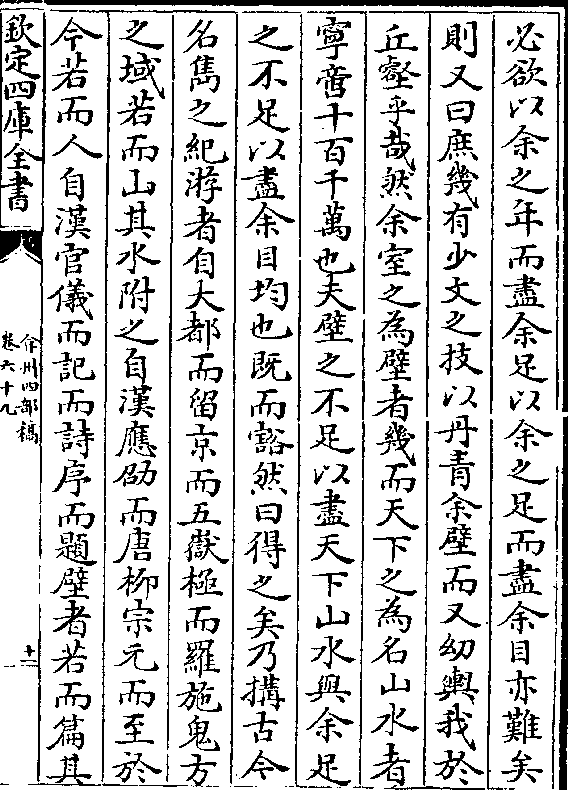 必欲以余之年而盡余足以余之足而盡余目亦難矣
則又曰庶幾有少文之技以丹青余壁而又幼輿我於
丘壑乎哉然余室之為壁者幾而天下之為名山水者
寧啻十百千萬也夫壁之不足以盡天下山水與余足
之不足以盡余目均也既而豁然曰得之矣乃搆古今
名雋之紀游者自大都而留京而五嶽極而羅施鬼方
之域若而山其水附之自漢應劭而唐柳宗元而至於
今若而人自漢官儀而記而詩序而題壁者若而篇其
欽定四庫全書
弇州四部稿
卷六十九
十二